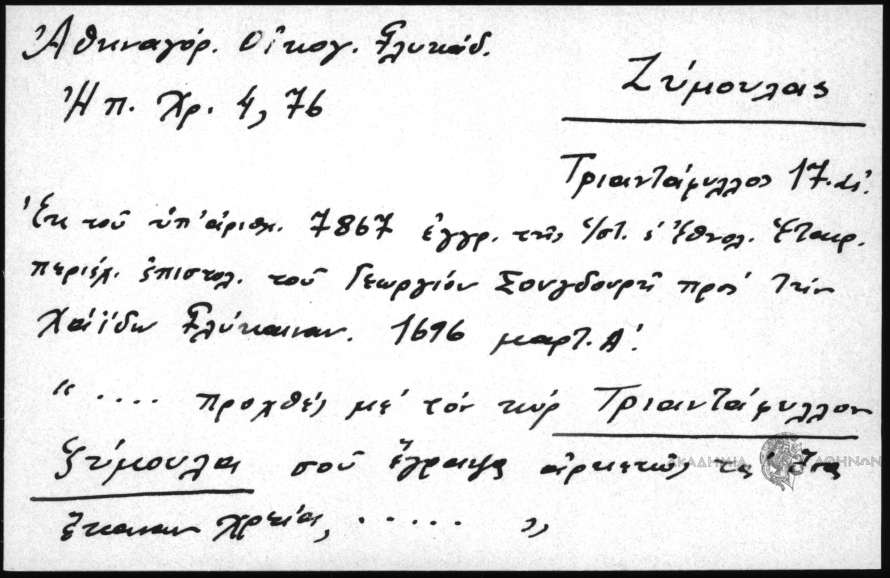 Ἀθηναγόρ. Οἰκογ. Γλυκάδ.
Ἠπ. Χρ. 4, 76
Ζύμουλας
Τριαντάφυλλος 17. αἰ.
Ἐκ τοῦ ὑπ' ἀριθμ. 7867 ἐγγρ. τῆς Ἱστ. & Ἐθνολ. Ἑταιρ.
περιέχ. ἐπιστολ. τοῦ Γεωργίου Σουγδουρῆ πρὸς τὴν
Χάϊδω Γλύκαιναν. 1696 μαρτ. Α΄.
" .... προχθὲς μὲ τὸν κὺρ Τριαντάφυλλον
Ζύμουλα σοῦ ἔγραψα ἀρκετῶς τὰ ὅσα
ἔκαναν χρεία, ..... "
ΑΚΑΔΗΜΙΑ ΑΘΗΝΩΝ